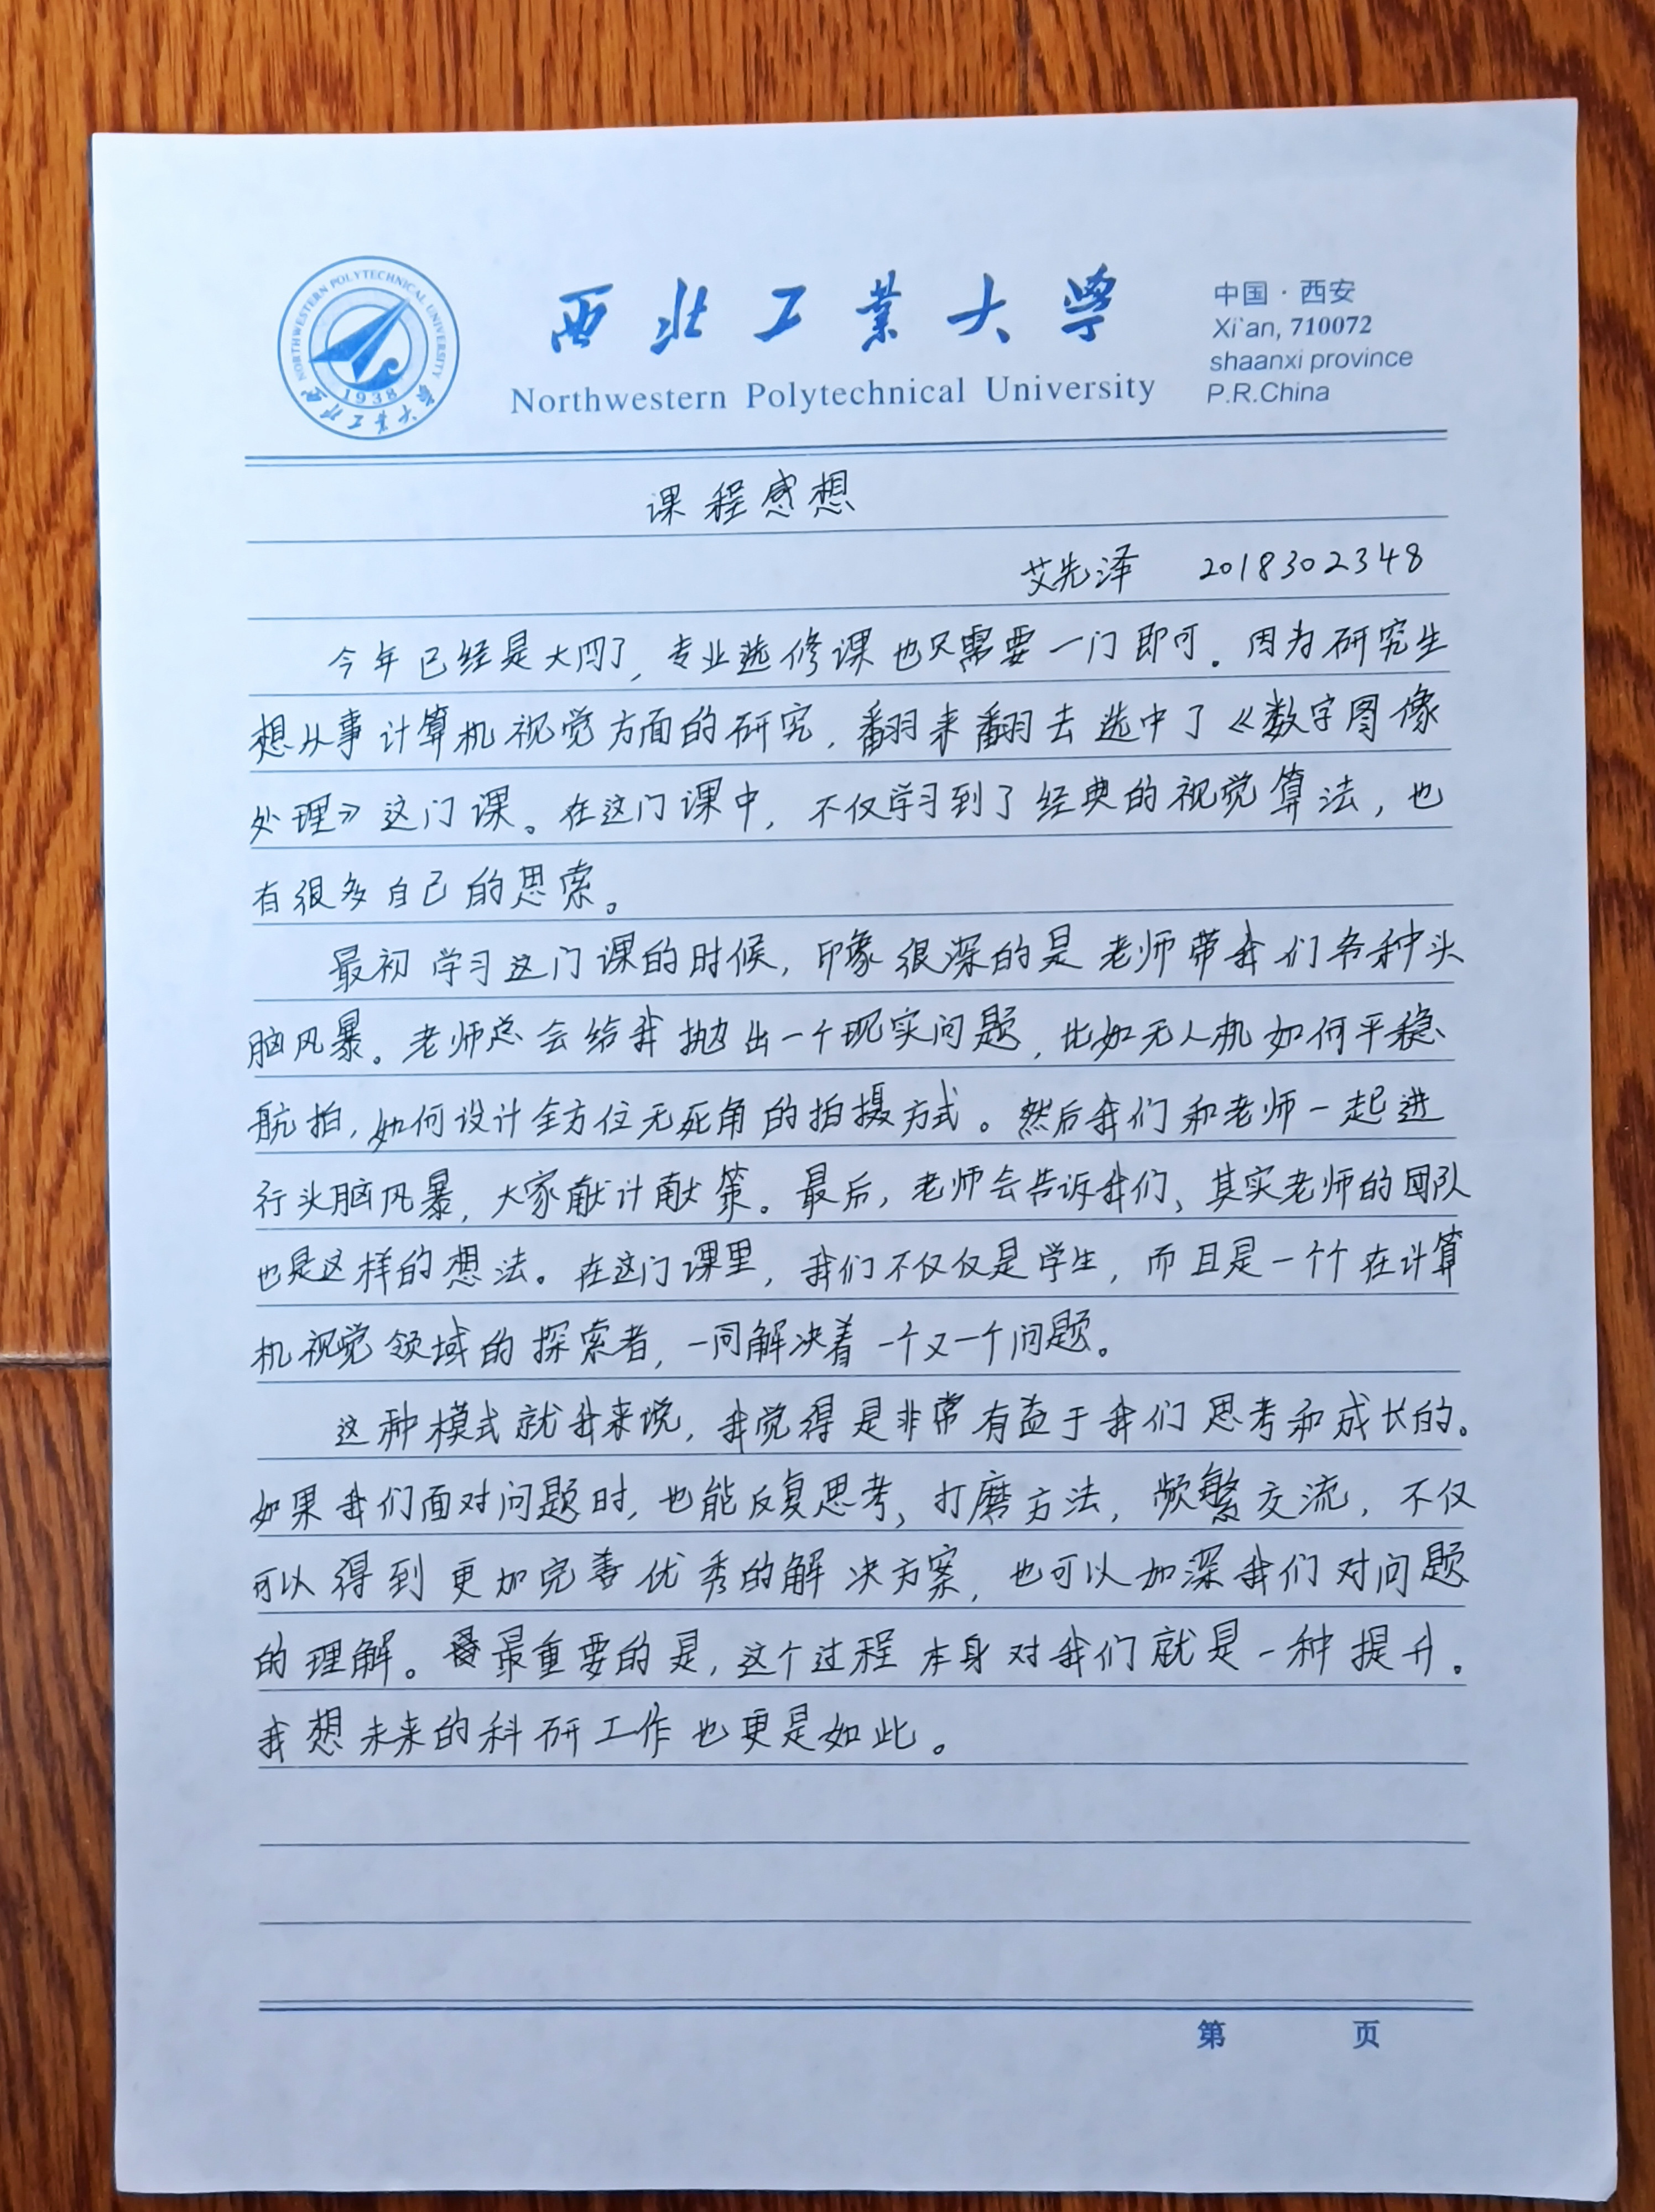 NORTHWESTERN POLYTECHNICAL UNIVERSITY
1938
西北工业大学
西北工业大学
Northwestern Polytechnical University
中国·西安
Xi'an, 710072
shaanxi province
P.R.China
课程感想
艾先泽 2018302348
今年已经是大四了，专业选修课也只需要一门即可。因为研究生
想从事计算机视觉方面的研究，翻来翻去选中了《数字图像
处理》这门课。在这门课中，不仅学习到了经典的视觉算法，也
有很多自己的思索。
最初学习这门课的时候，印象很深的是老师带我们各种头
脑风暴。老师总会给我抛出一个现实问题，比如无人机如何平稳
航拍，如何设计全方位无死角的拍摄方式。然后我们和老师一起进
行头脑风暴，大家献计献策。最后，老师会告诉我们、其实老师的团队
也是这样的想法。在这门课里，我们不仅仅是学生，而且是一个个在计算
机视觉领域的探索者，一同解决着一个又一个问题。
这种模式就我来说，我觉得是非常有益于我们思考和成长的。
如果我们面对问题时，也能反复思考，打磨方法，频繁交流，不仅
可以得到更加完善优秀的解决方案，也可以加深我们对问题
的理解。最重要的是，这个过程本身对我们就是一种提升。
我想未来的科研工作也更是如此。
第 页